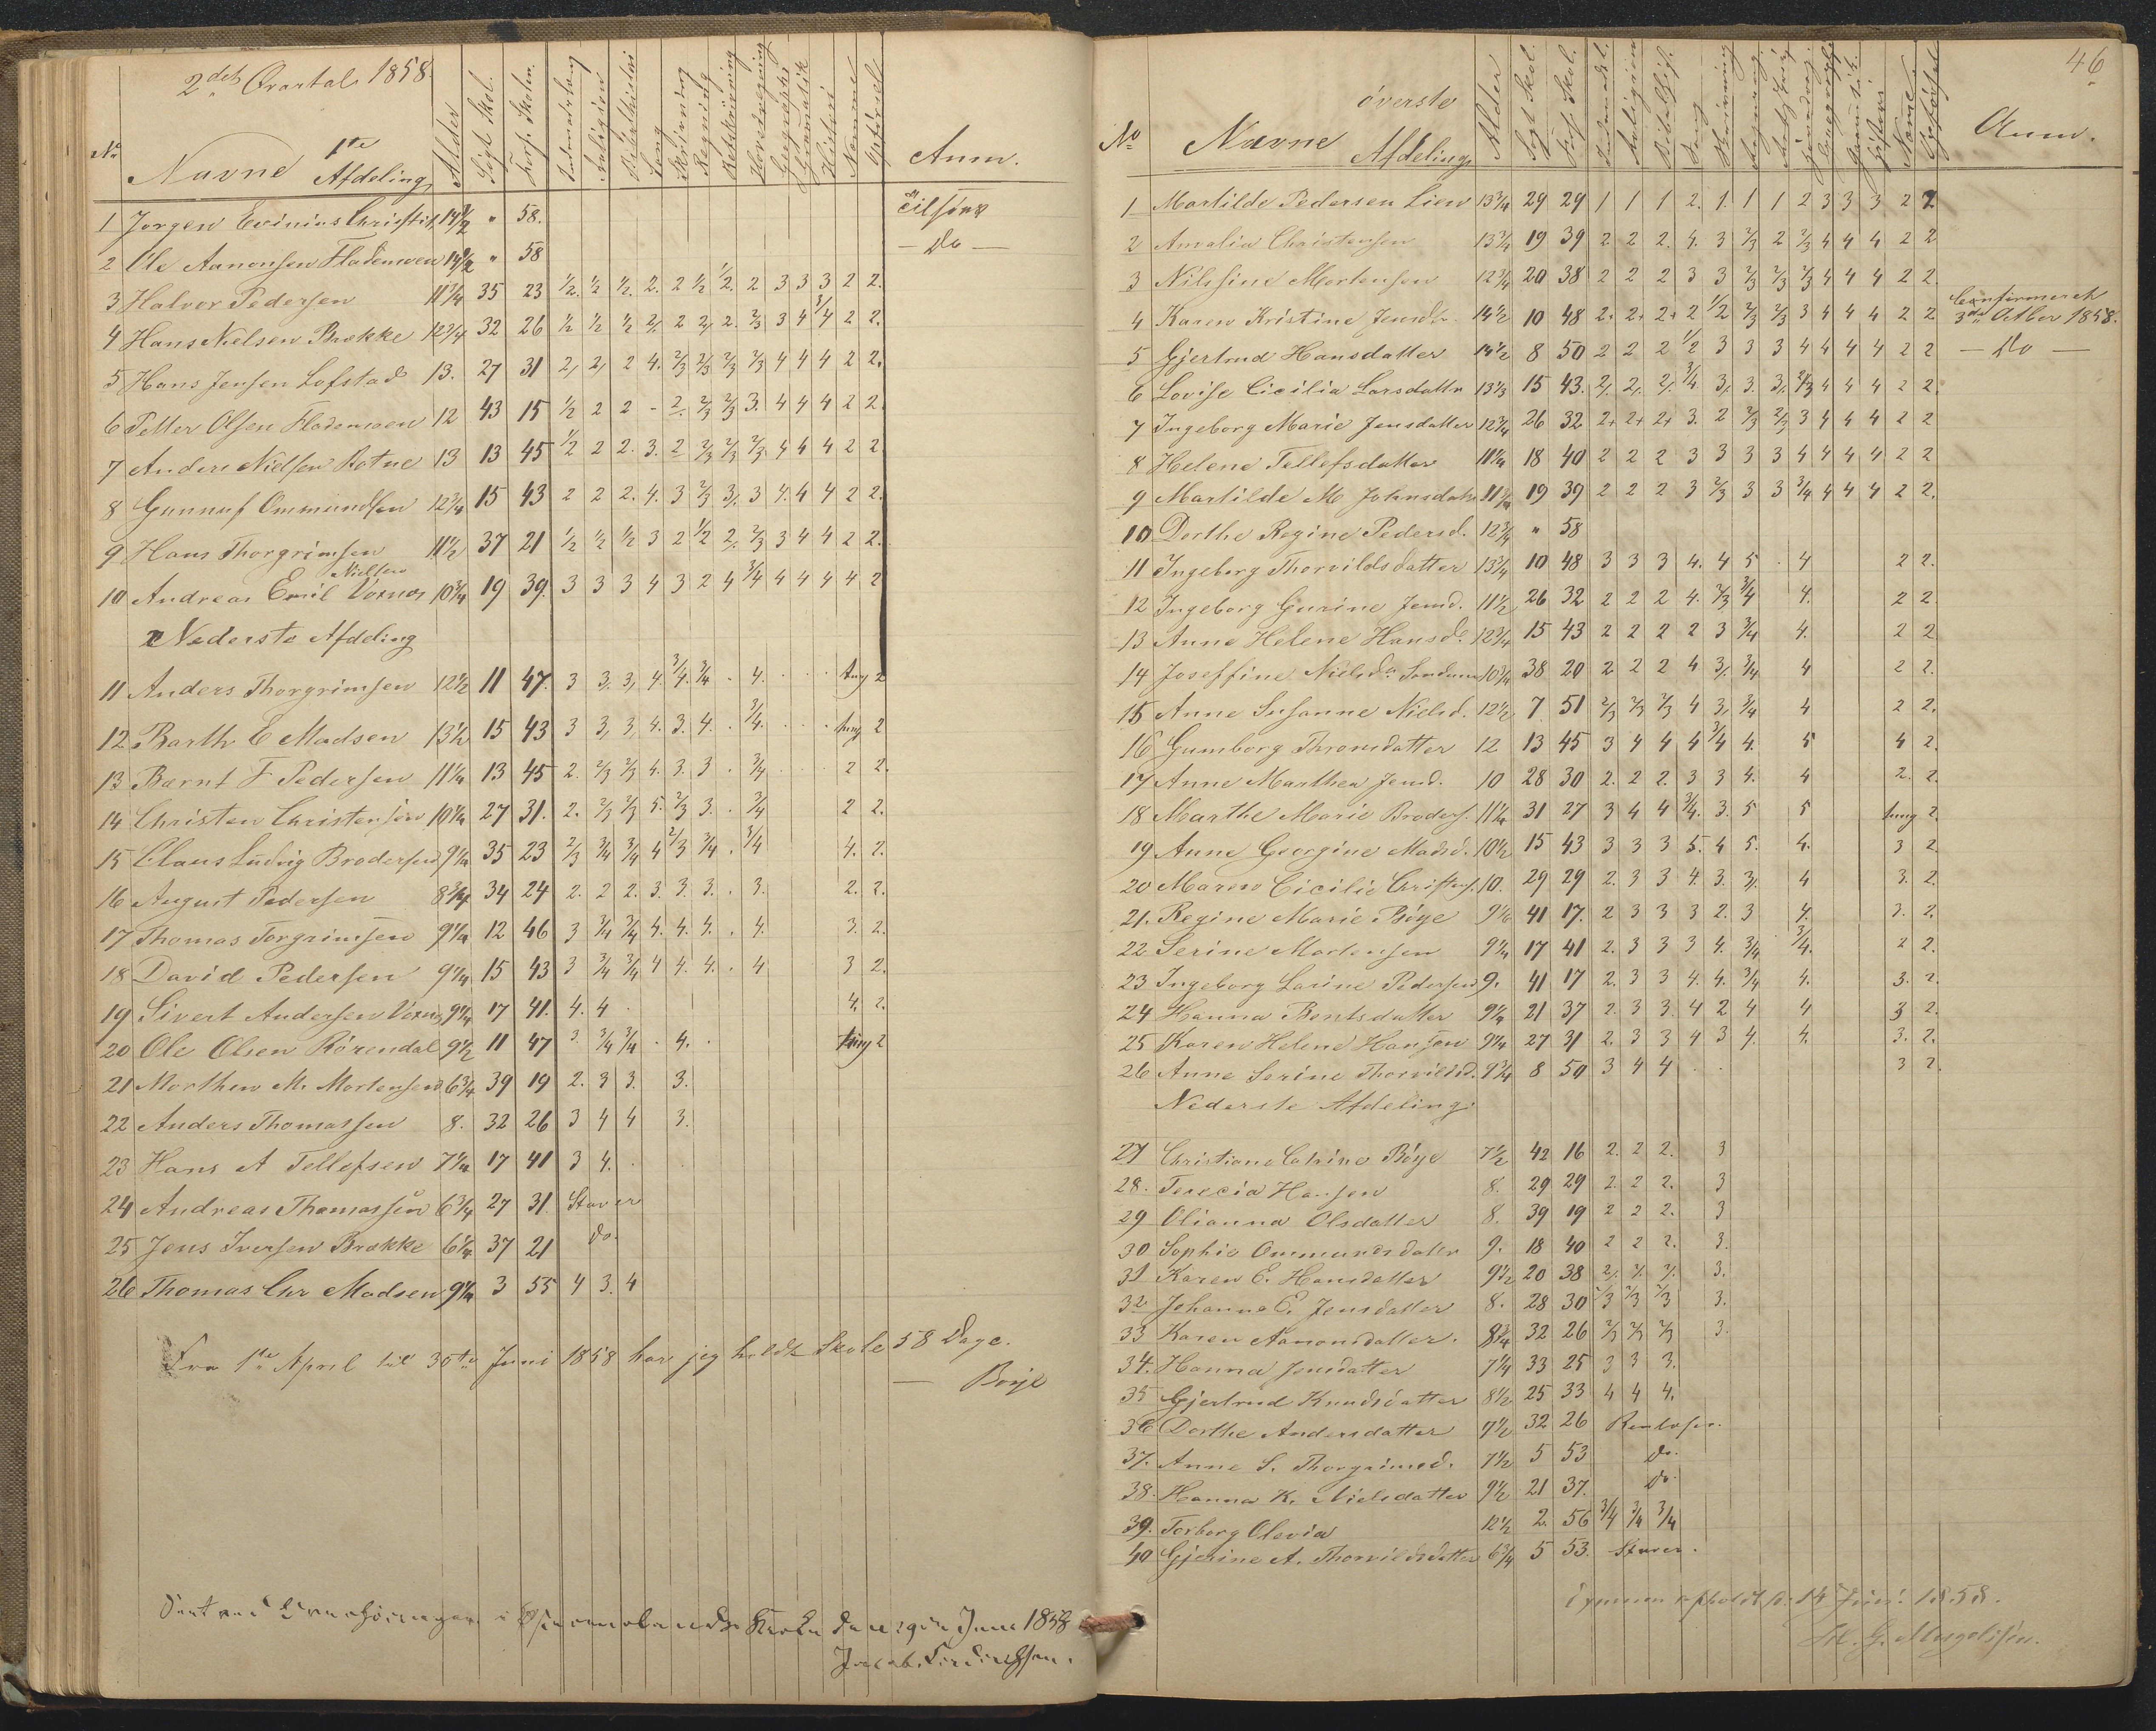 2det Qvartal 1858.
No Navne 1te Afdeling Alder Sögt Skol. Fors. Skolen. Religion Sang Skrivning Regning Hovedregning Geographi Gramatik Histori Nemme Opförsel Anm.
1 Jorgen Evinius Christis 14 1/2 " 58. Tilsöes
2 Ole Aanonsen Flademoen 14 1/2 " 58 — Do —
3 Halvor Pedersen 11 3/4 35 23 1/2. 1/2 1/2. 2. 2 1/2 1/2. 2 3 3 3 2 2.
4 Hans Nielsen Brække 12 3/4 32 26 1/2 1/2 1/2 2/. 2 2/ 2. 2/3 3 4 3/4 2 2.
5 Hans Jensen Lofstad 13. 27 31 2, 2, 2 4. 2/3 2/3 2/3 2/3 4 4 4 2 2.
6 Petter Olsen Flademoen 12 43 15 1/2 2 2 - 2. 2/3 2/3 3. 4 4 4 2 2
7 Anders Nielsen Botne 13 13 45 1/2 2 2. 3. 2 2/3 2/3 2/3. 4 4 4 2 2.
8 Gunnuf Ommundsen 12 3/4 15 43 2 2 2. 4. 3 2/3 3/. 3 4. 4 4 2 2.
9 Hans Thorgrimsen 11 1/2 37 21 1/2 1/2 1/2 3 2 1/2 2/. 2/3 3 4 4 2 2.
10 Andreas Emil Nielsen Voxnes 10 3/4 19 39. 3 3 3 4 3 2 4 3/4 4 4 4 4 2
Nederste Afdeling
11 Anders Thorgrimsen 12 1/2 11 47. 3 3, 3, 4. 3/4. 3/4 . 4. . . . tung 2
12. Barth E Madsen 13 1/2 15 43 3 3, 3, 4. 3. 4. . 3/4. . . . tung 2
13 Barnt F Pedersen 11 1/4 13 45 2. 2/3 2/3 4. 3. 3 . 3/4 . . . 2 2.
14 Christen Christensen 10 1/4 27 31. 2. 2/3 2/3 5. 2/3 3. . 3/4 2 2.
15 Claus Ludvig Brodersen 9 1/4 35 23 2/3 3/4 3/4 4 2/3 3/4 . 3/4 4. 2.
16 August Pedersen 8 3/4 34 24 2. 2 2. 3. 3 3. . 3. 2. 2.
17 Thomas Torgrimsen 9 1/4 12 46 3 3/4 3/4 4. 4. 4. . 4. 3. 2.
18 David Pedersen 9 1/4 15 43 3 3/4 3/4 4 4. 4. . 4 3 2.
19 Sivert Andersen Voxnes 9 1/4 17 41. 4. 4 . 4. 2.
20 Ole Olsen Rörendal 9 1/2 11 47 3. 3/4 3/4 . 4. . tung 2
21 Morthen M. Mortensen 6 3/4 39 19 2. 3 3. 3.
22 Anders Thomassen 8. 32 26 3 4 4 3.
23 Hans A Tellefsen 7 1/4 17 41 3 4. .
24 Andreas Thomassen 6 3/4 27 31. Staver
25 Jens Iversen Brække 6 1/4 37 21 Do.
26 Thomas Chr Madsen 9 1/4 3 55 4 3. 4
Fra 1te April til 30te Juni 1858 har jeg holdt Skole 58 Dage.
— Böye
Juni 1858
46
No Navne överste Afdeling Alder Sögt Skol. Fors. Skol. Religion Sang Skrivning Regning Gramatik Histori Nemme Opförsel Anm.
1 Martilde Pedersen Lien 13 3/4 29 29 1 1 1 2. 1. 1 1 2 3 3 3 2 2
2 Amalia Christensen 13 3/4 19 39 2 2 2. 4. 3 2/3 2 2/3 4 4 4 2 2
3 Nilssine Mortensen 12 3/4 20 38 2 2 2 3 3 2/3 2/3 2/3 4 4 4 2 2.
4 Karen Kristine Jensdtr. 14 1/2 10 48 2+ 2+ 2+ 2 1/2 2/3 2/3 3 4 4 4 2 2 Confirmeret 3die Octber 1858.
5 Gjertrud Hansdatter 14 1/2 8 50 2 2 2 1/2 3 3 3 4 4 4 4 2 2 — Do —
6 Lovise Cicilia Larsdattr 13 1/3 15 43. 2/. 2/. 2/. 3/4. 3/. 3. 3/. 2/3 4 4 4 2 2.
7 Ingeborg Marie Jensdatter 12 3/4 26 32 2+ 2+ 2+ 3. 2 2/3 2/3 3 4 4 4 2 2
8 Helene Tellefsdatter 11 1/4 18 40 2 2 2 3 3 3 3 4 4 4 4 2 2
9 Martilde M Johnsdatr 11 3/4 19 39 2 2 2 3 2/3 3 3 3/4 4 4 4 2 2.
10 Dorthe Regine Pedersd. 12 3/4 " 58
11 Ingeborg Thorvildsdatter 13 1/4 10 48 3 3 3 4. 4 5 . 4 2 2.
12 Ingeborg Gurine Jensd. 11 1/2 26 32 2 2 2 4. 2/3 3/4 4. 2 2
13 Anne Helene Hansd. 12 3/4 15 43 2 2 2 2 3 3/4 4. 2 2
14 Joseffine Nielsdr. 10 3/4 38 20 2 2 2 4 3/. 3/4 4 2 2.
15 Anne Susanne Nielsd. 12 1/2 7 51 2/3 2/3 2/3 4 3, 3/4 4 2 2.
16 Gumborg Thronsdatter 12 13 45 3 4 4 4 3/4 4. 5 4 2.
17 Anne Marthea Jensd. 10 28 30 2. 2 2. 3 3 4. 4 2. 2.
18 Marthe Marie Broders. 11 1/4 31 27 3 4 4 3/4. 3. 5 5 tung 2.
19 Anne Georgine Madsd. 10 1/2 15 43 3 3 3 5. 4 5. 4. 3 2.
20 Maren Cicilie Christens. 10. 29 29 2. 3 3 4. 3. 3/. 4 3. 2.
21. Regine Marie Böye 9 1/2 41 17. 2 3 3 3 2. 3 4. 3. 2.
22 Serine Mortensen 9 1/4 17 41 2. 3 3 3 4. 3/4 3/4. 2 2.
23 Ingeborg Larine Pedersen 9. 41 17 2. 3 3 4. 4. 3/4 4. 3. 2.
24 Hanna Bentsdatter 9 1/4 21 37 2. 3 3. 4 2 4 4 3 2.
25 Karen Helene Hansen 9 1/4 27 31 2. 3 3 4 3 4. 4. 3. 2.
26 Anne Serine Thorvildsd. 9 3/4 8 50 3 4 4 . . 3 2.
Nederste Afdeling.
27 Christiane Catrine Böye 7 1/2 42 16 2. 2 2. 3
28. Terecia Hansen 8. 29 29 2. 2 2. 3
29 Olianna Olsdatter 8. 39 19 2 2 2. 3
30 Sophie Ommundsdattr 9. 18 40 2 2 2. 3.
31 Karen E. Hansdatter 9 1/2 20 38 2/. 2/. 2/. 3.
32 Johanne E. Jensdatter 8. 28 30 2/3 2/3 2/3 3.
33 Karen Aanonsdatter. 8 3/4 32 26 2/3 2/3 2/3 3.
34. Hanna Jensdatter 7 1/4 33 25 3 3 3.
35 Gjertrud Knudsdatter 8 1/2 25 33 4 4 4.
36 Dorthe Andersdatter 7 1/2 32 26
37. Anne S. Thorgrimsd. 7 1/2 5 53 Do.
38. Hanna K. Nielsdatter 9 1/2 21 37. Do.
39. Torborg Olevia 12 1/2 2. 56 3/4 3/4 3/4
40 Gjerine A. Thorvildsdatter 6 3/4 5 53. Staver.
14 Juni 1858.